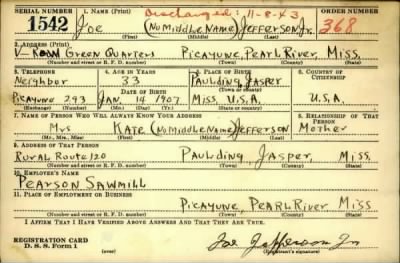 SERIAL NUMBER 1. NAME (Print) Discharged: 11-8-43 ORDER NUMBER
1542 Joe (No Middle Name) Jefferson Jr. 368
(First) (Middle) (Last)
2. ADDRESS (Print)
Green Quarters Picayune, Pearl River, Miss.
(Number and street or R. F. D. number) (Town) (County) (State)
3. TELEPHONE 4. AGE IN YEARS 5. PLACE OF BIRTH 6. COUNTRY OF CITIZENSHIP
Neighbor 33 Paulding Jasper
DATE OF BIRTH (Town or county)
Picayune 293 Jan. 14 1907 Miss. U.S.A. U.S.A.
(Exchange) (Number) (Mo.) (Day) (Yr.) (State or country)
7. NAME OF PERSON WHO WILL ALWAYS KNOW YOUR ADDRESS 8. RELATIONSHIP OF THAT PERSON
Mrs Kate (No Middle Name) Jefferson Mother
(Mr., Mrs., Miss) (First) (Middle) (Last)
9. ADDRESS OF THAT PERSON
Rural Route 120 Paulding Jasper, Miss.
(Number and street or R. F. D. number) (Town) (County) (State)
10. EMPLOYER'S NAME
Pearson Sawmill
11. PLACE OF EMPLOYMENT OR BUSINESS
Picayune, Pearl River Miss
(Number and street or R. F. D. number) (Town) (County) (State)
I AFFIRM THAT I HAVE VERIFIED ABOVE ANSWERS AND THAT THEY ARE TRUE.
REGISTRATION CARD
D. S. S. Form 1 Joe Jefferson Jr
(Registrant's signature)